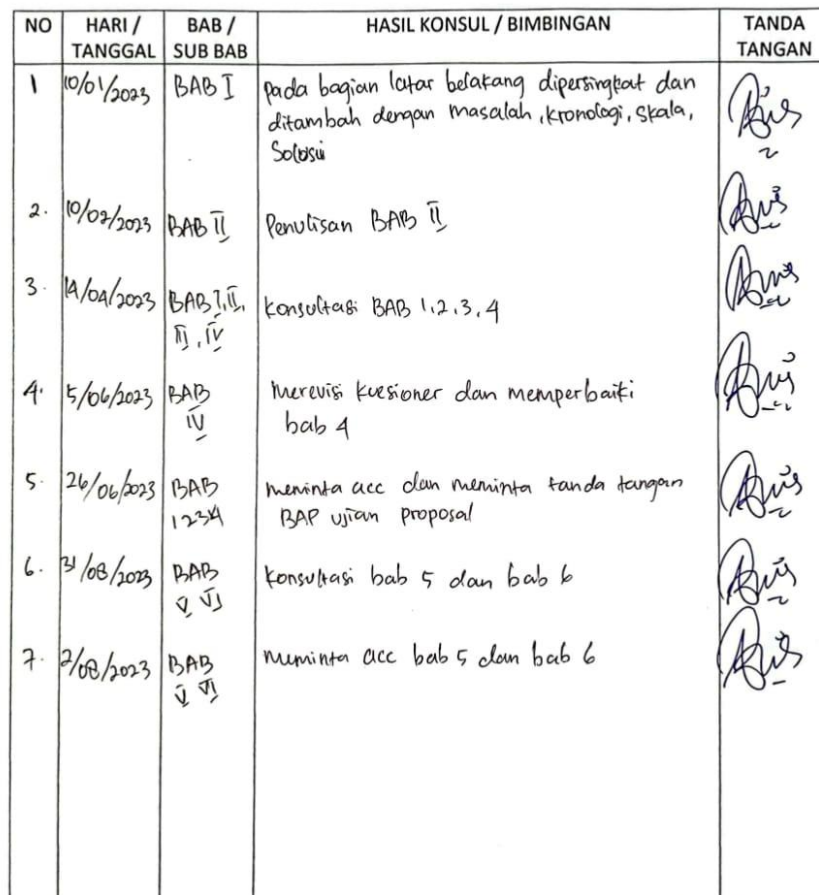 NO HARI / TANGGAL BAB / SUB BAB HASIL KONSUL / BIMBINGAN TANDA TANGAN
1 10/01/2023 BAB I pada bagian latar belakang dipersingkat dan
ditambah dengan masalah, kronologi, skala,
Solusi
2. 10/02/2023 BAB II Penulisan BAB II
3. 14/04/2023 BAB I, II, Konsultasi BAB 1, 2, 3, 4
III, IV
4. 5/06/2023 BAB Merevisi kuesioner dan memperbaiki
IV bab 4
5. 26/06/2023 BAB meminta acc dan meminta tanda tangan
1234 BAP ujian proposal
6. 31/08/2023 BAB Konsultasi bab 5 dan bab 6
V VI
7. 2/08/2023 BAB meminta acc bab 5 dan bab 6
V VI